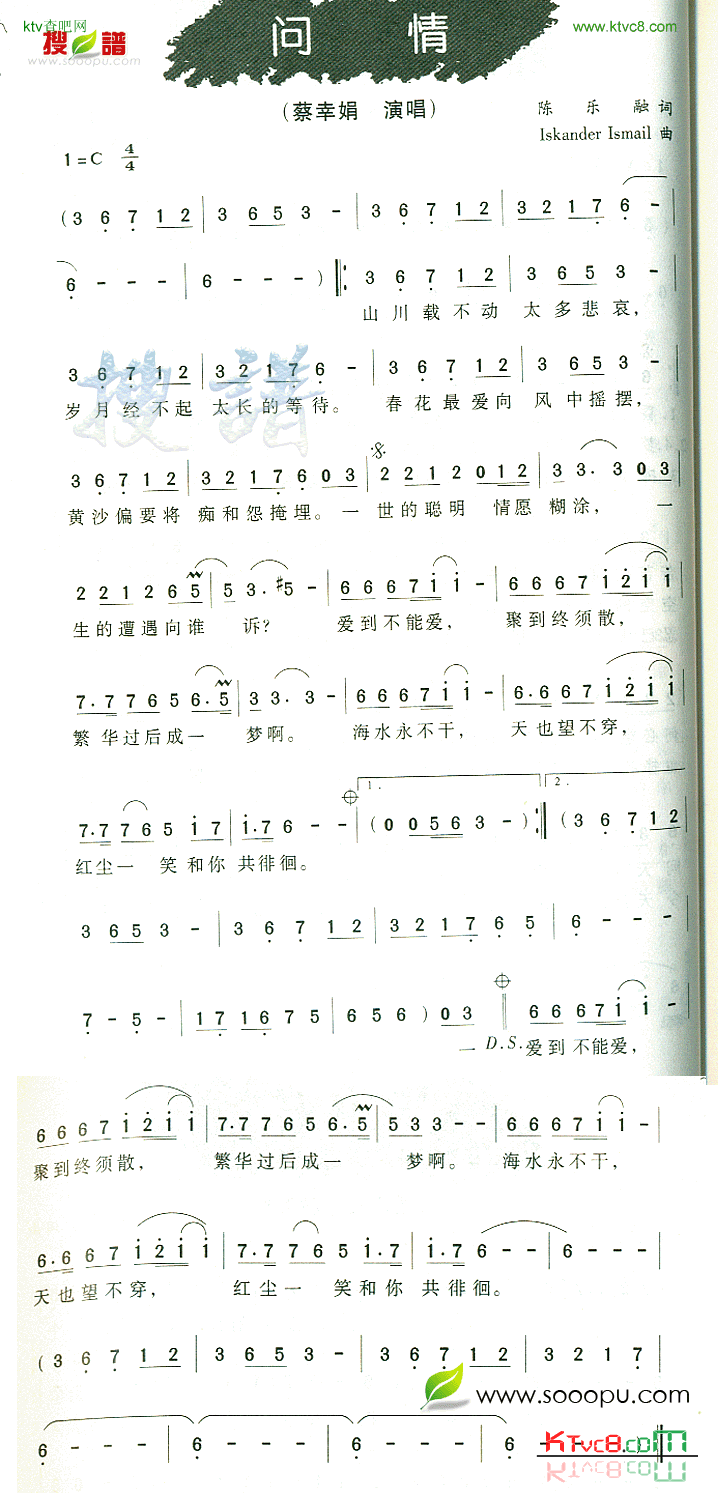 ktv杏吧网
www.ktvc8.com
搜 譜
www.sooopu.com
问 情
(蔡幸娟 演唱)
陈 乐 融 词
Iskander Ismail 曲
1=C 4/4
(3 6 7 1 2 | 3 6 5 3 - | 3 6 7 1 2 | 3 2 1 7 6 - |
6 - - - | 6 - - - ) ‖: 3 6 7 1 2 | 3 6 5 3 - |
山川载不动 太多悲哀,
3 6 7 1 2 | 3 2 1 7 6 - | 3 6 7 1 2 | 3 6 5 3 - |
岁月经不起 太长的等待。 春花最爱向 风中摇摆,
搜 譜
3 6 7 1 2 | 3 2 1 7 6 0 3 | 2 2 1 2 0 1 2 | 3 3· 3 0 3 |
黄沙偏要将 痴和怨掩埋。一 世的聪明 情愿糊涂, 一
2 2 1 2 6 5 | 5 3· #5 - | 6 6 6 7 i i - | 6 6 6 7 i 2 i i |
生的遭遇向谁 诉? 爱到不能爱, 聚到终须散,
7·7 7 6 5 6·5 | 3 3· 3 - | 6 6 6 7 i i - | 6·6 6 7 i 2 i i |
繁华过后成一 梦啊。 海水永不干, 天也望不穿,
1. 2.
7·7 7 6 5 i 7 | i·7 6 - - | ( 0 0 5 6 3 - ) :‖ (3 6 7 1 2 |
红尘一 笑和你 共徘徊。
3 6 5 3 - | 3 6 7 1 2 | 3 2 1 7 6 5 | 6 - - - |
7 - 5 - | 1 7 1 6 7 5 | 6 5 6 ) 0 3 ‖ 6 6 6 7 i i - |
一 D.S. 爱到不能爱,
6 6 6 7 i 2 i i | 7·7 7 6 5 6·5 | 5 3 3 - - | 6 6 6 7 i i - |
聚到终须散, 繁华过后成一 梦啊。 海水永不干,
6·6 6 7 i 2 i i | 7·7 7 6 5 i·7 | i·7 6 - - | 6 - - - |
天也望不穿, 红尘一 笑和你 共徘徊。
(3 6 7 1 2 | 3 6 5 3 - | 3 6 7 1 2 | 3 2 1 7 |
www.sooopu.com
6 - - - | 6 - - - | 6 - - - | 6 -
KTvc8.com